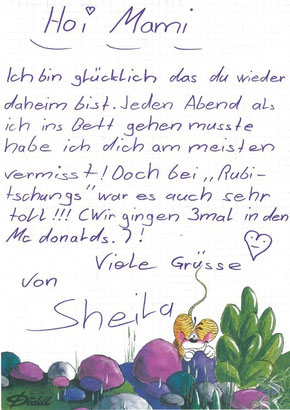 Hoi Mami
Ich bin glücklich das du wieder
daheim bist. Jeden Abend als
ich ins Bett gehen musste
habe ich dich am meisten
vermisst! Doch bei „Rubi-
tschungs" war es auch sehr
toll!!! (Wir gingen 3mal in den
Mc donalds.)!
Viele Grüsse
von
Sheila
Diddl